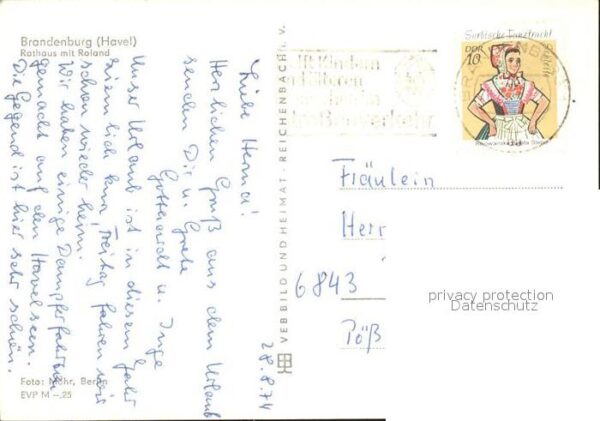 Brandenburg (Havel)
Rathaus mit Roland
Liebe Herma!
Herzlichen Gruß aus dem Urlaub
senden Dir u. Grete
Gotthardt u. Inge
Unser Urlaub ist in diesem Jahr
ziemlich kurz, Freitag fahren wir
schon wieder heim.
Wir haben einige Dampferfahrten
gemacht auf den Havelseen.
Die Gegend ist hier sehr schön.
28.8.74
Foto: Mohr, Berlin
EVP M –,25
VEB BILD UND HEIMAT · REICHENBACH i. V.
Mit Kindern
im Straßenverkehr
Sorbische Tanztracht
DDR
10
Fräulein
Herr
6843
Pöß
privacy protection
Datenschutz